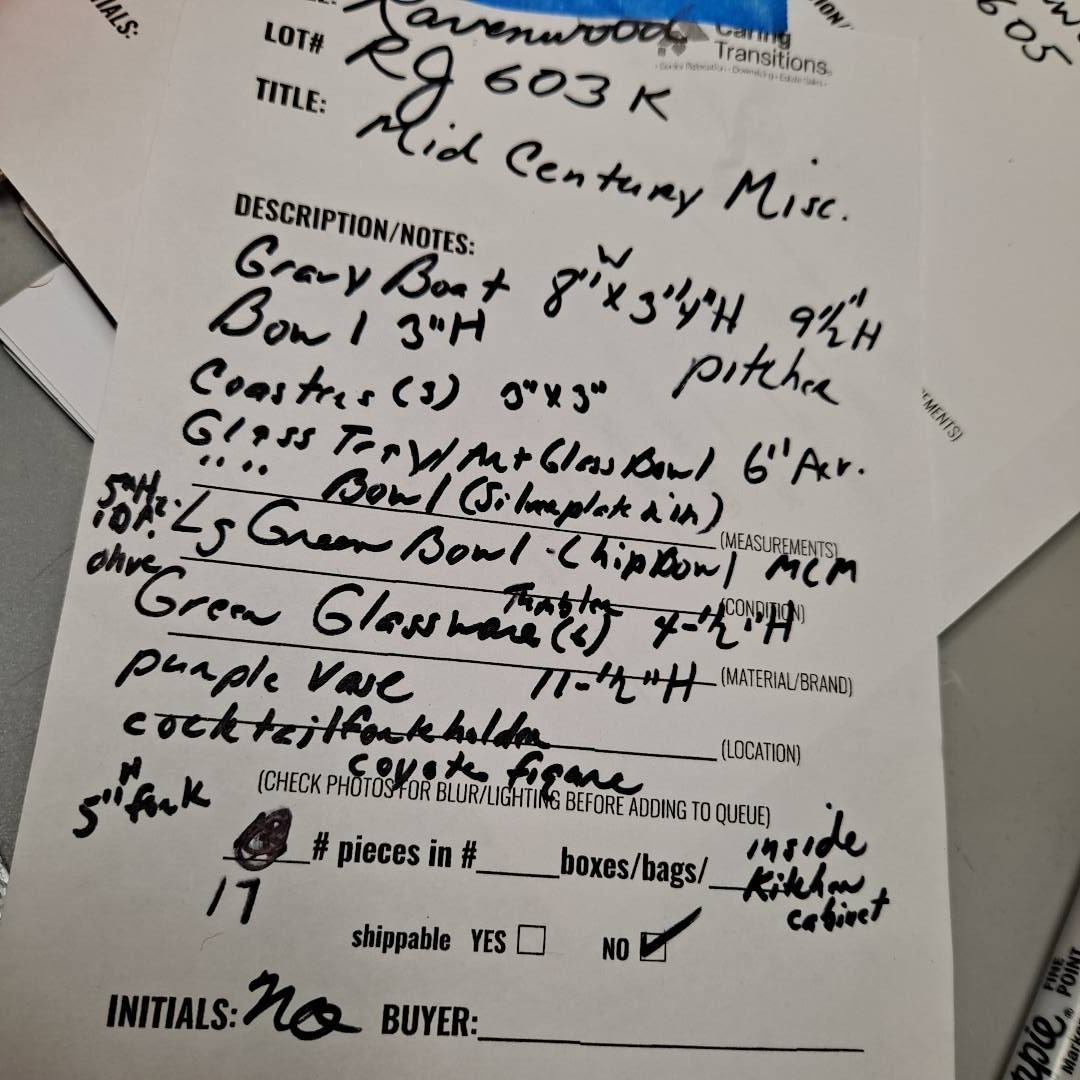 Ravenwood
Caring
Transitions
LOT# RJ 603 K
TITLE: Mid Century Misc.
DESCRIPTION/NOTES:
W
Gravy Boat 8" x 3"4"H 9½"H
Bowl 3"H pitcher
Coasters (3) 3" x 3"
Glass Tray/Art Glass Bowl 6" Acr.
Bowl (Silverplate rim)
(MEASUREMENTS)
5"H
10"
olive
Lg Green Bowl - Chip Bowl MCM
(CONDITION)
Tumbler
Green Glassware (6) 4-½"H
(MATERIAL/BRAND)
purple Vase 11-½"H
cocktail fork holder
(LOCATION)
coyote figure
5"H fork
(CHECK PHOTOS FOR BLUR/LIGHTING BEFORE ADDING TO QUEUE)
# pieces in #____boxes/bags/ inside
Kitchen
cabinet
17
shippable YES NO
INITIALS: no BUYER:
605
IALS:
EMENTS)
FINE
POINT